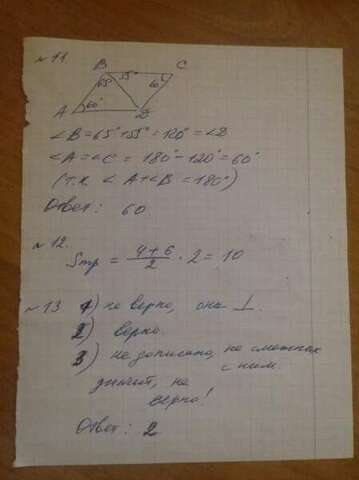 № 11.
B 65° 55° C
60°
A 60° D
∠B = 65° + 55° = 120° = ∠D
∠A = ∠C = 180° - 120° = 60°
(т.к. ∠ A + ∠B = 180°)
Ответ: 60.
№ 12.
Sтр = 4+6/2 · 2 = 10
№ 13 1) не верно, они ⊥.
2) верно.
3) не записано, не смежных
с ним.
значит, не
верно!
Ответ: 2